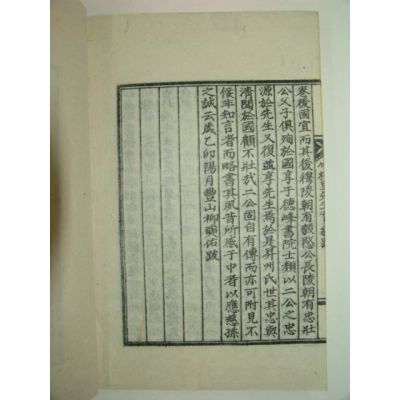 卷後固宜而其後穆陵朝有毅愍公長陵朝有忠壯
公父子俱殉於國享于德峰書院士類以二公之忠
源於先生又復並享先生焉於是昇州氏世其忠與
濟閔於國顧不壯哉二公固自有傳而亦可附見不
佞非知言者而略書其風昔所感于中者以應慈孫
之誠云歲乙卯陽月豐山柳 佑跋